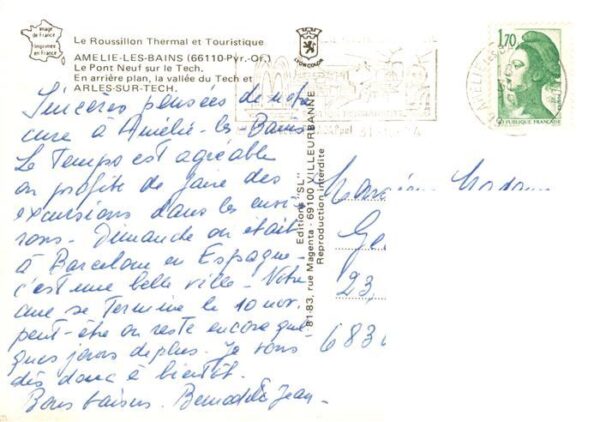 Image
de France
Imprimée
en France
Le Roussillon Thermal et Touristique
AMELIE-LES-BAINS (66110-Pyr.-Or.)
Le Pont Neuf sur le Tech.
En arrière plan, la vallée du Tech et
ARLES-SUR-TECH.
LYONCOLOR
1,70
REPUBLIQUE FRANÇAISE
Sincères pensées de notre
cure à Amélie-les-Bains
Le Temps est agréable
on profite de faire des
excursions dans les envi
rons. Dimanche on était
à Barcelone en Espagne
c'est une belle ville. Notre
cure se Termine le 10 nov.
peut-être on reste encore quel
ques jours de plus. Je vous
dis donc à bientôt.
Bons baisers. Bernadette Jean
Editions "SL"
81-83, rue Magenta - 69100 VILLEURBANNE
Reproduction interdite
Monsieur Madam
Ge
23,
683